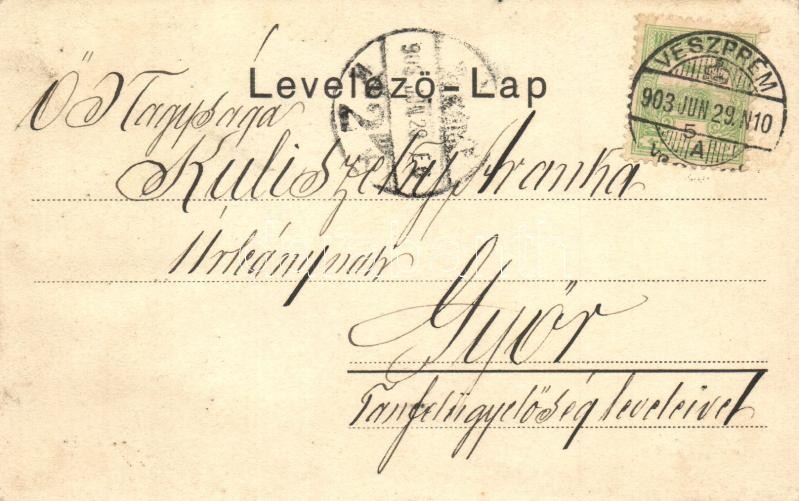 Levelező-Lap
VESZPRÉM
903 JUN 29. N10
5
A
Ő Nagysága
Kuliszeky Aranka
Úrhölgynek
Győr
Tanfelügyelőség leveleivel